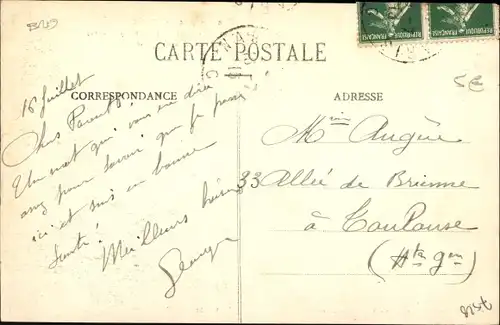 CARTE POSTALE
CORRESPONDANCE
ADRESSE
REPUBLIQUE FRANÇAISE
REPUBLIQUE FRANÇAISE
16 Juillet
Chers Parents,
Un mot qui vous en dira
pour savoir que je
ici et suis en bonne
santé!
Meilleurs baisers
Georges
Mme
33 Allée de Brienne
à Toulouse
(Hte Gne)
5€